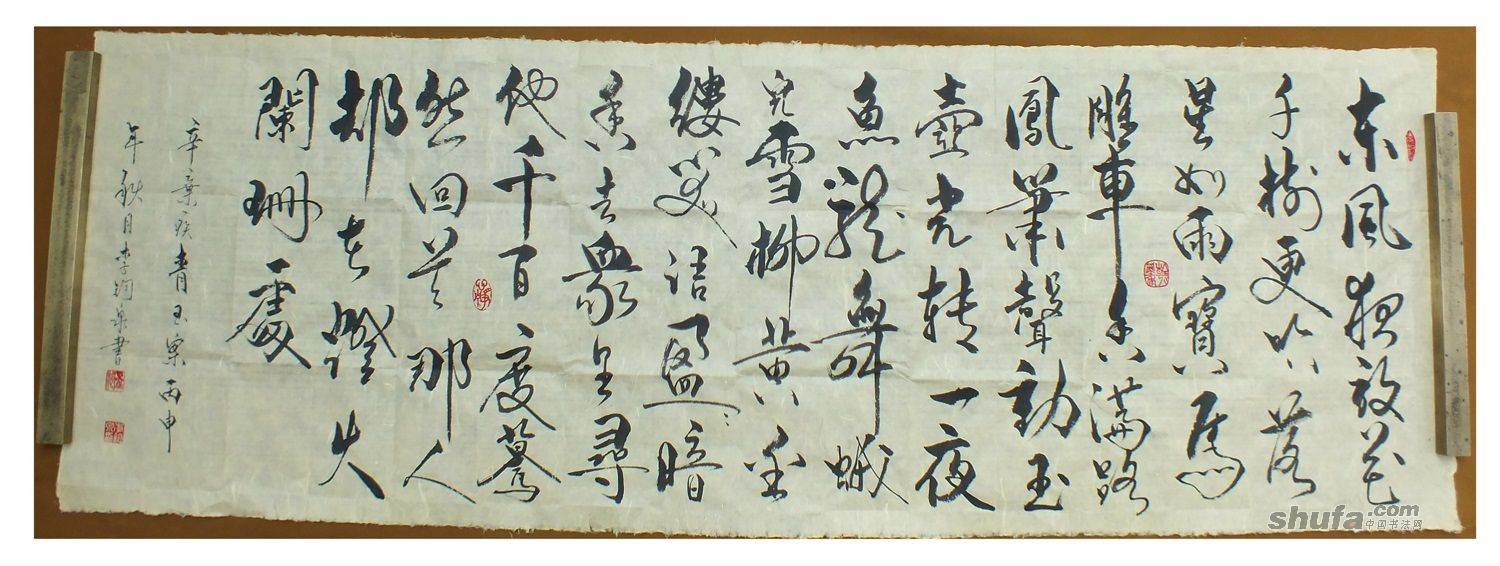 東風夜放花
千樹更吹落
星如雨寶馬
雕車香滿路
鳳簫聲動玉
壺光转一夜
魚龍舞蛾
兒雪柳黄金
缕笑語盈盈暗
香去衆里尋
他千百度驀
然回首那人
却在燈火
闌珊處
辛棄疾青玉案丙申
年秋月李泉書
shufa.com
中国书法网